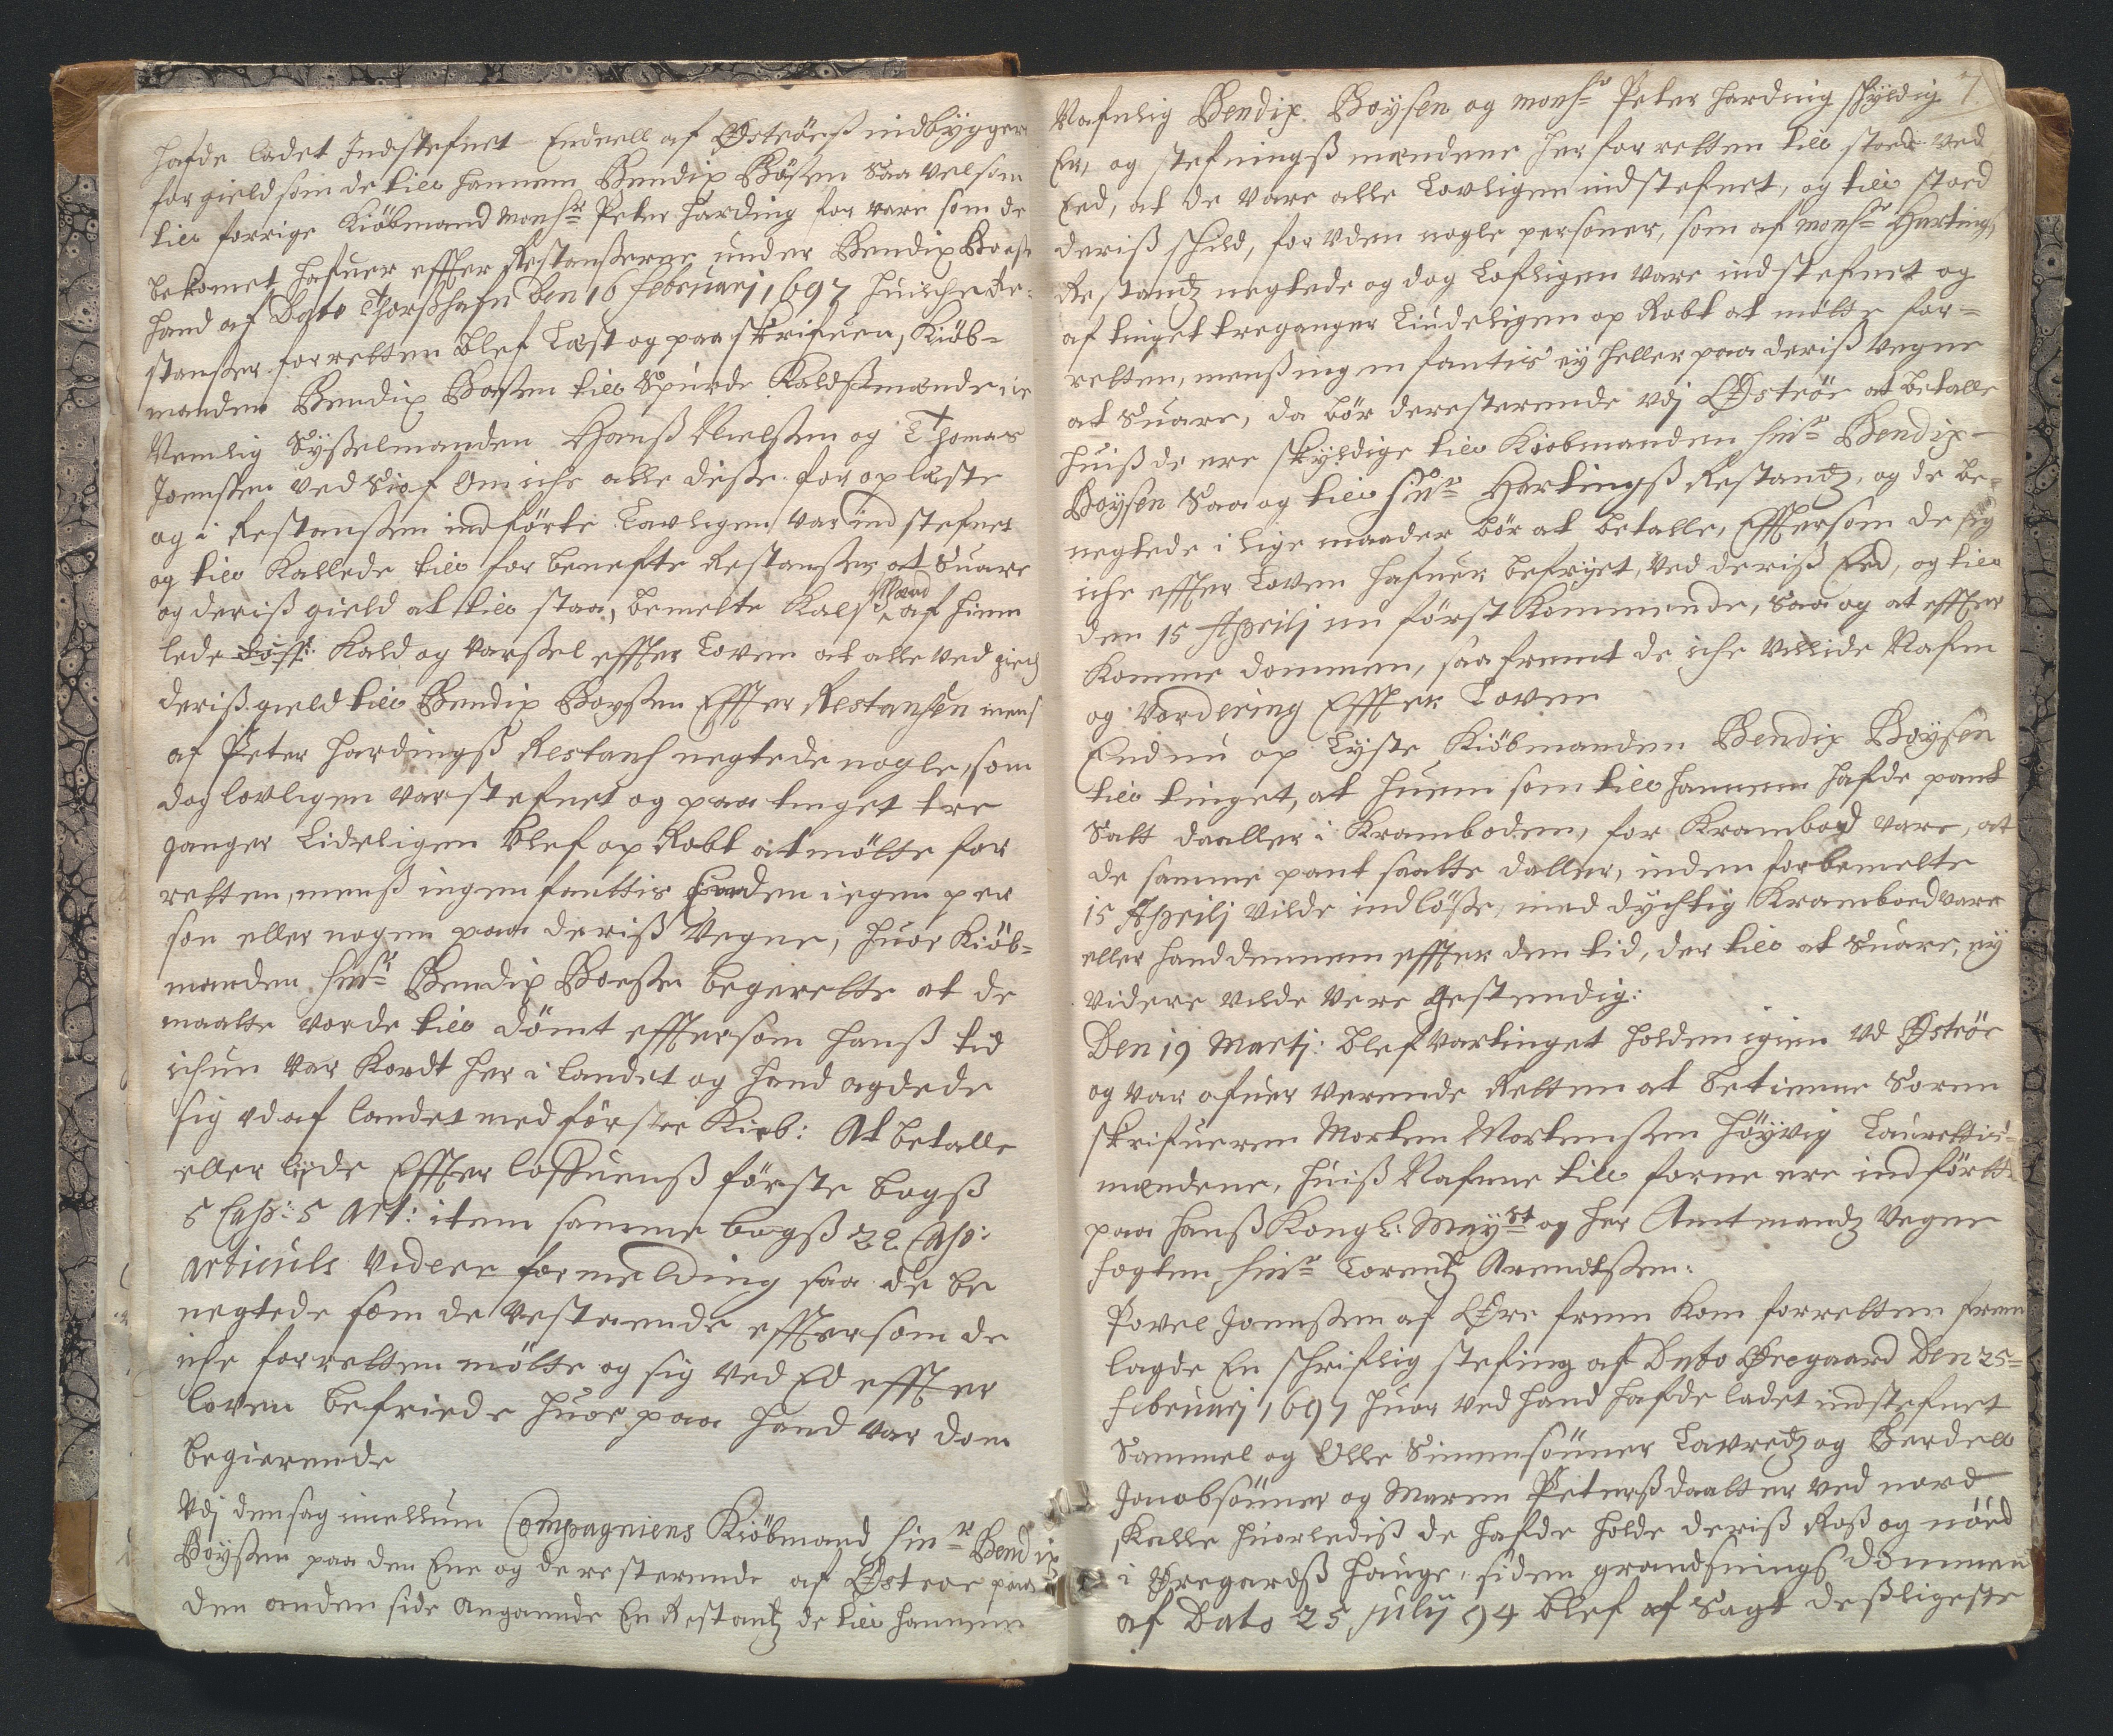 hafde ladet Indstefnet Endeell af Øströeß indbÿggere
for gield som de till hannem Bendix Böÿsen Saa vel som
till forrige Kiöbmand Monsr Peter Harding for vare som de
bekomet hafuer effter Restanßerne under Bendix Boÿs:
haand af Dato Thorßhafn den 16 Februarj 1697 huilche Re-
stanßer for retten blef Læst og paaskrifuen, Kiöb-
manden Bendix Boÿsen till Spurde Kaldßmændene
Nemlig Sÿßelmanden Hanß Nielßen og Thomas
Joenßen ved Siof Om iche alle diße for op læste
og i Restanßen indförte Lovligen var ind stefnet
og till Kallede till for benefte Restanßer at Suare
og deriß gield at till staa, bemelte Kalß Mænd af hiem
lede Kald og Varßel effter Loven at alle ved gich
deriß gield till Bendix Boÿsen Effter Restansen mens
af Peter Hardingß Restans negtede nogle, som
dog lovligen var stefnet og paa tinget tre
ganger Lideligen blef op Robt at mötte for
retten, menß ingen fanttis Enden i egen per
son eller nogen paa deriß Vegne, huor Kiöb-
manden Sinr Bendix Boeßen begierette at de
maatte vorde till dömt effttersom hanß tid
ichun var Kordt her i landet og hand agtede
sig ud af landet med förster Kieb: At betalle
eller lÿde Effter loffuenß förste bogß
5 Cap: 5 Art: item samme bogß 22 Cap:
articuls Videre formelding saa de be
negtede som de Restaende effttersom de
iche for retten mötte og sig ved Ed effter
loven befriede huor paa hand var dom
begierende
Vdj den sag imellum Compagniens Kiöbmand Sinr Bendix
Boÿsen paa den Ene og de resterende af Østeroe paa
den anden side Angaaende En Restantz de till hannem
7
Nafnlig Bendix Boÿsen og Monsr Peter Harding skÿldig
Er, og stefningß mændene her for retten till stoed ved
Eed, at de vare alle Lovligen indstefnet, og till stoed
deriß skuld, for uden nogle personer, som af Monsr Hartings
Restantz negtede og dog Lofligen vare indstefnet og
af tinget tregangen Liudeligen op Robt at mötte for-
retten, menß ingen fantis eÿ heller paa deriß Vegne
at Suare, da bör de resterende vdj Øströe at betalle
huiß de ere skÿldige till Kiobmanden Sinr Bendix
Boÿsen Saa og till Sinr Hartingß Restantz, og de be-
negtede i lige maader bör at betalle, Effttersom de sig
iche effter Loven hafuer befrÿet, Ved deriß Eed, og till
den 15 Aprilj nu först Kommende, Saa og at effter
Komme dommen, saa fremt de iche Villide Nafm
og Vordering Effter Loven
End nu op Lÿste Kiöbmanden Bendix Boÿsen
till tinget, at huem som till hannem hafde pant
Satt daaller i Kramboden, for Krambod vare, at
de samme pant saatte daller, inden forbemelte
15 Aprilj vilde indlöße, med dÿchtig Kramboed vare
eller hand dennem effter den tid, der till at Suare, eÿ
videre vilde Vere gestendig:
Den 19 Martj: blef vartinget holden igien Vd Øströe
og var ofuer verende Retten at betienne Soren
skrifueren Morten Mortenßen Höÿvig Laurettis-
mændene, huiß Nafnne till forne ere indförtt
paa Hanß Kongl: Maÿst og her Amtmandtz Vegne
fogten Sinr Lorentz Arendtßen:
Povel Joenßen af Øre frem Kom for retten frem
lagde En skrifftlig stefing af Dato Øregaard Den 25=
Februarj 1697 huor ved hand hafde ladet indstefnet
Sammel og Olle Simmensönner Lavredtz og Berdell
Jacobsönner og Maren Peterßdaatter ved nord
skalle huorlediß de hafde holde deriß Roß og nöed
i Øregardß hauge, siden grandsnings dommen
af Dato 25 Julij 94 blef af Sagt deßligeste